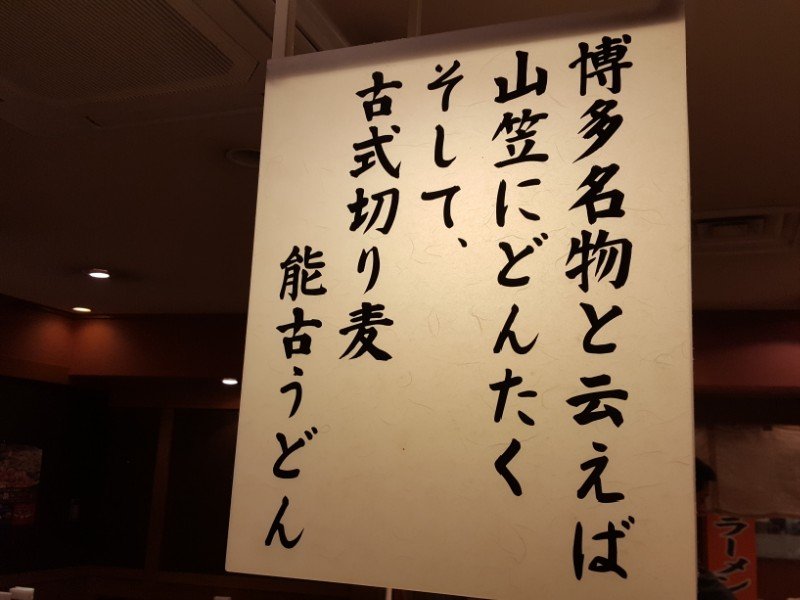 博多名物と云えば
山笠にどんたく
そして、
古式切り麦
能古うどん
ラーメン